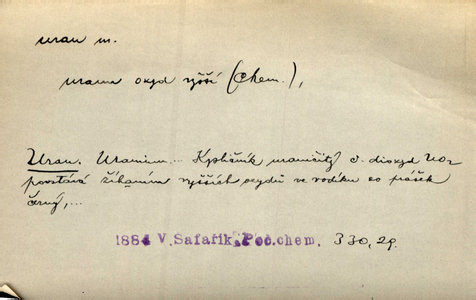 uran m.
uranu oxyd vyšší (chem.),
Uran. Uranium... Kysličník uraničitý č. dioxyd UO2
povstává žíháním vyšších oxydů ve vodíku co prášek
černý,...
1884 V. Šafařík, Poč.chem. 330,29.